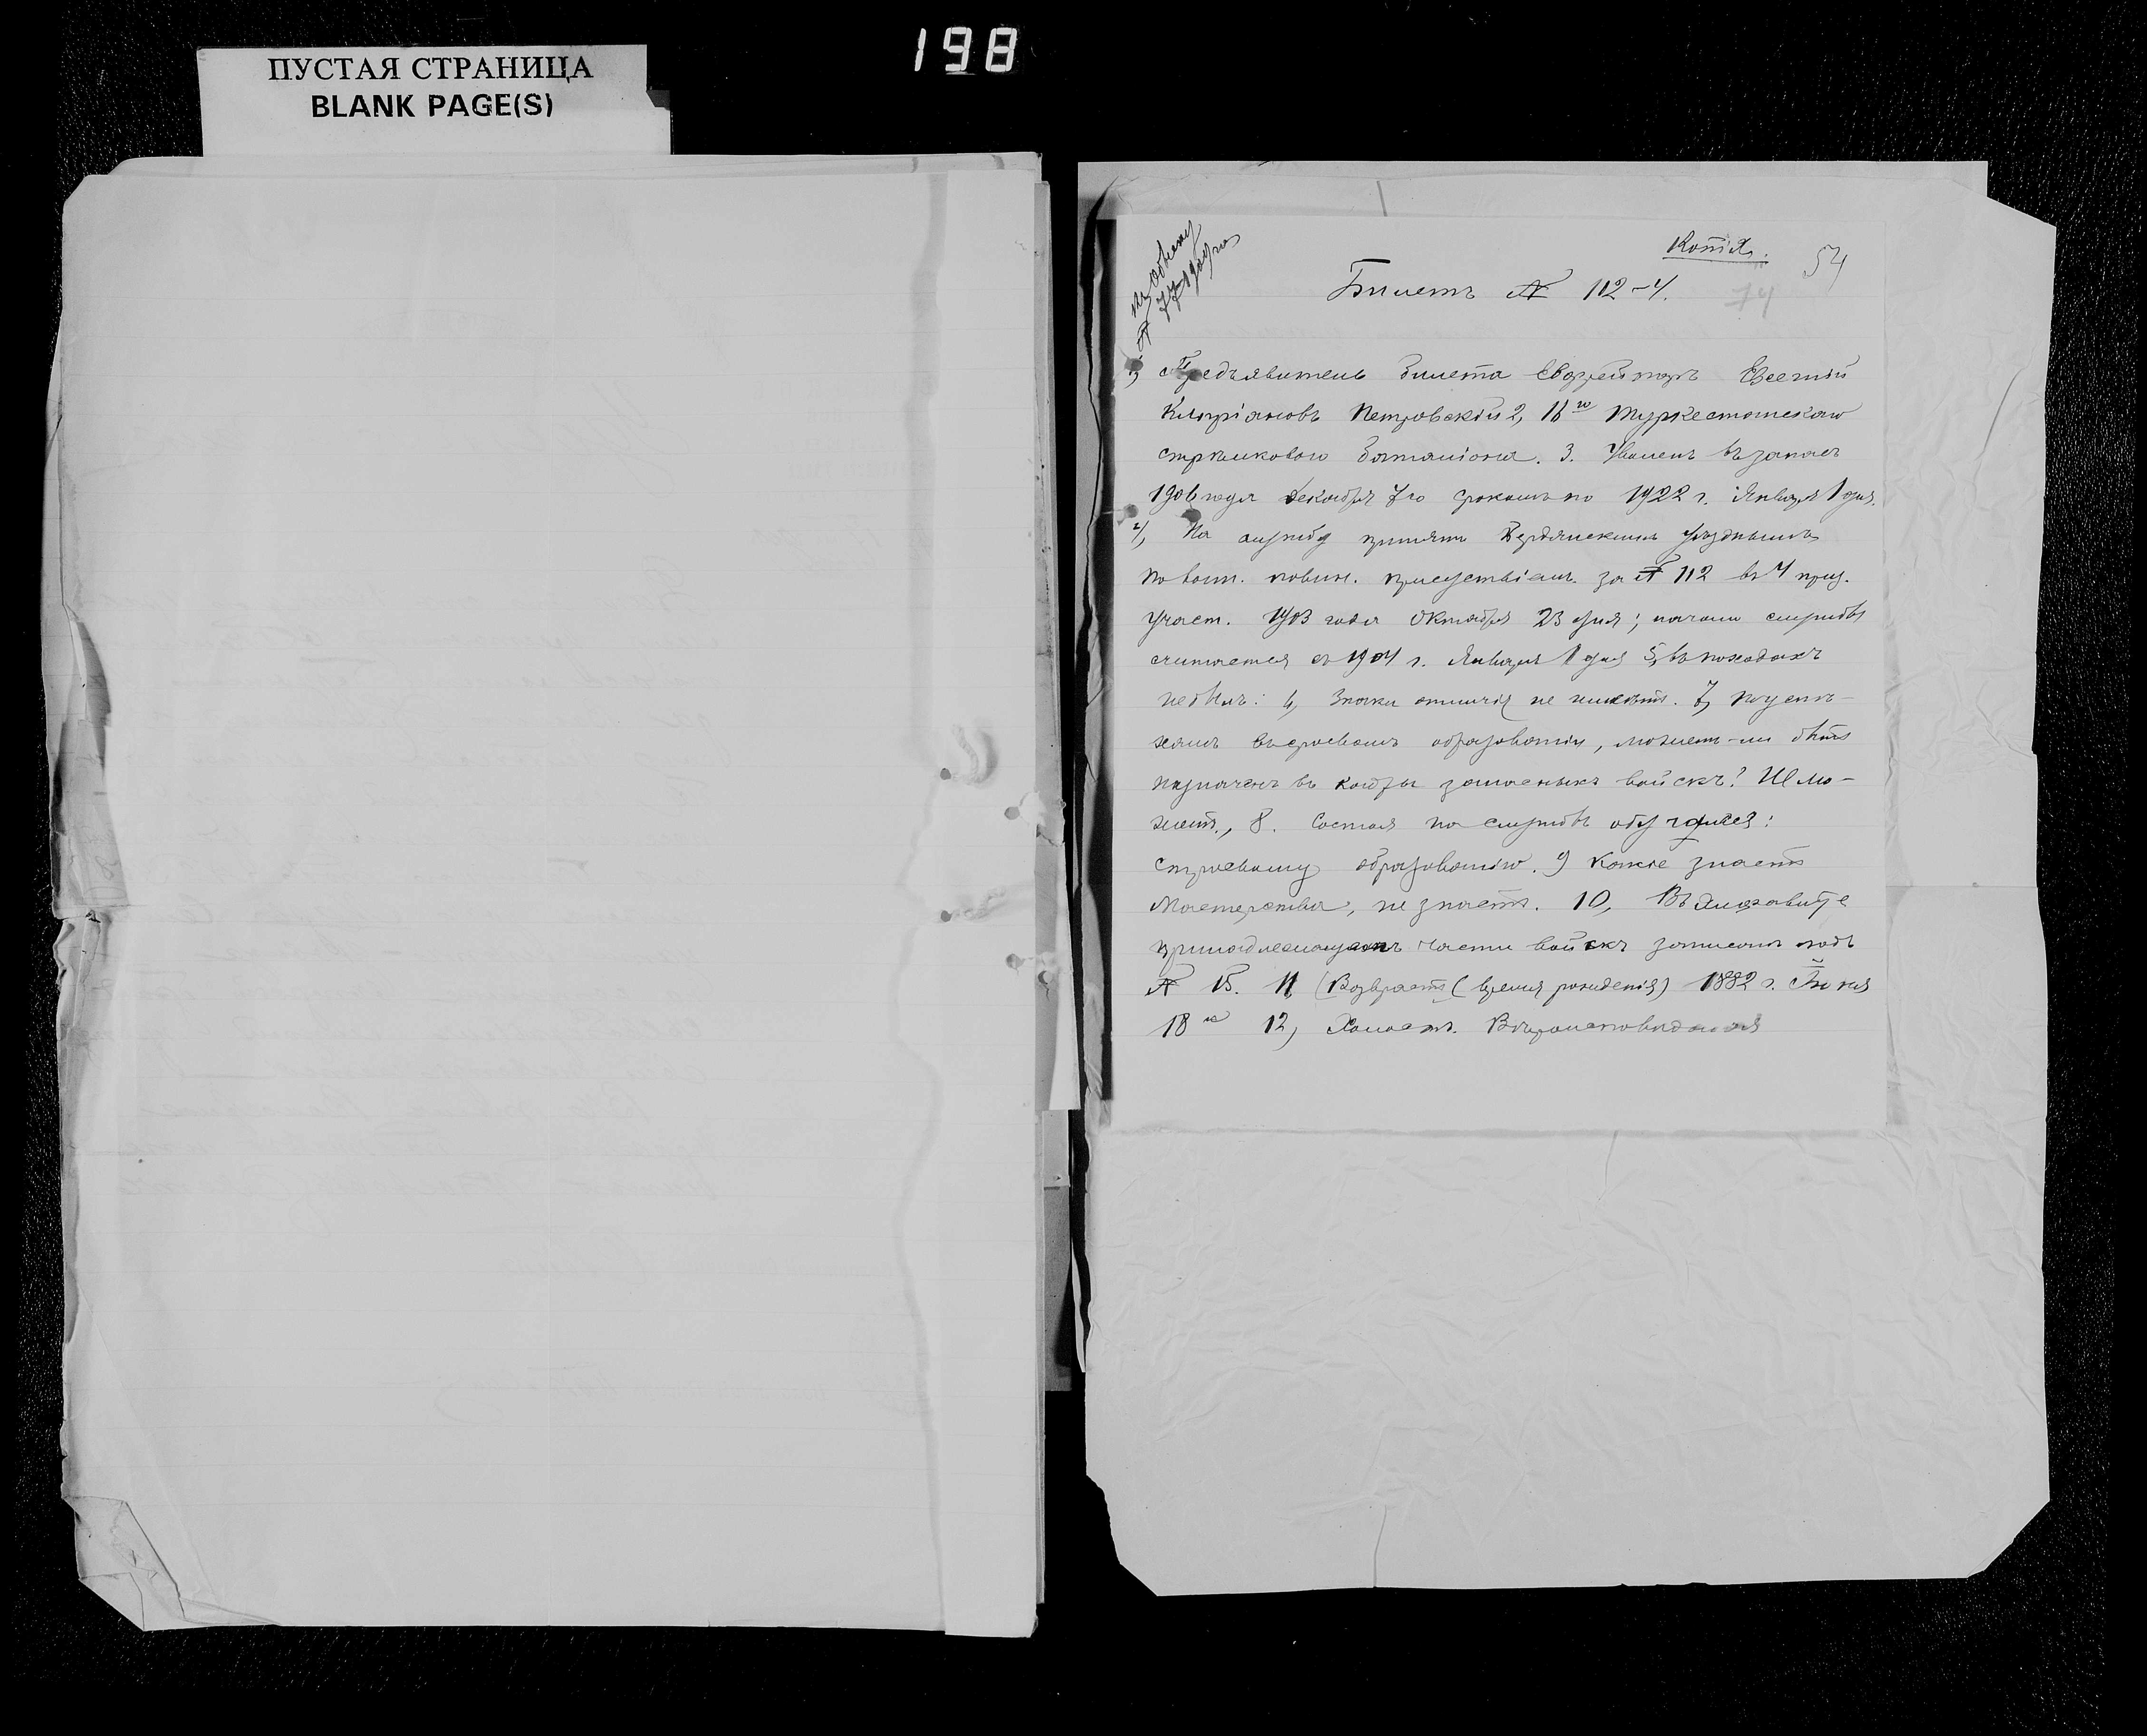 198
ПУСТАЯ СТРАНИЦА
BLANK PAGE(S)
Копія.
54
74
Билетъ № 112-4.
1) Предъявитель билета Евсѣвій
Кипріяновъ Петровскій 2, 16го Туркестанскаго
стрѣлковаго баталіона. 3. Уволенъ въ запасъ
1906 года декабря 7го срокомъ по 1922 г. Января 1 дня.
4, На службу принятъ Бердянскимъ уѣзднымъ
по воин. повин. присутствіемъ за № 112 въ 4 приз.
участ. 1903 года Октября 23 дня; начало службы
считается съ 1904 г. Января 1 дня 5, въ походахъ
не былъ: 6, Знаки отличія не имѣетъ. 7, по успѣ-
хамъ въ строевомъ образованіи, можетъ-ли быть
назначенъ въ кадры запасныхъ войскъ? Не мо-
жетъ., 8. Состоя на службѣ обучался:
строевому образованію. 9 Какіе знаетъ
Мастерства, не знаетъ. 10, Въ алфавитѣ
принадлежащемъ части войскъ записанъ подъ
№ 15. 11, Возврастъ (время рожденія) 1882 г. Іюня
18го 12, Холостъ. Вѣроисповѣданія